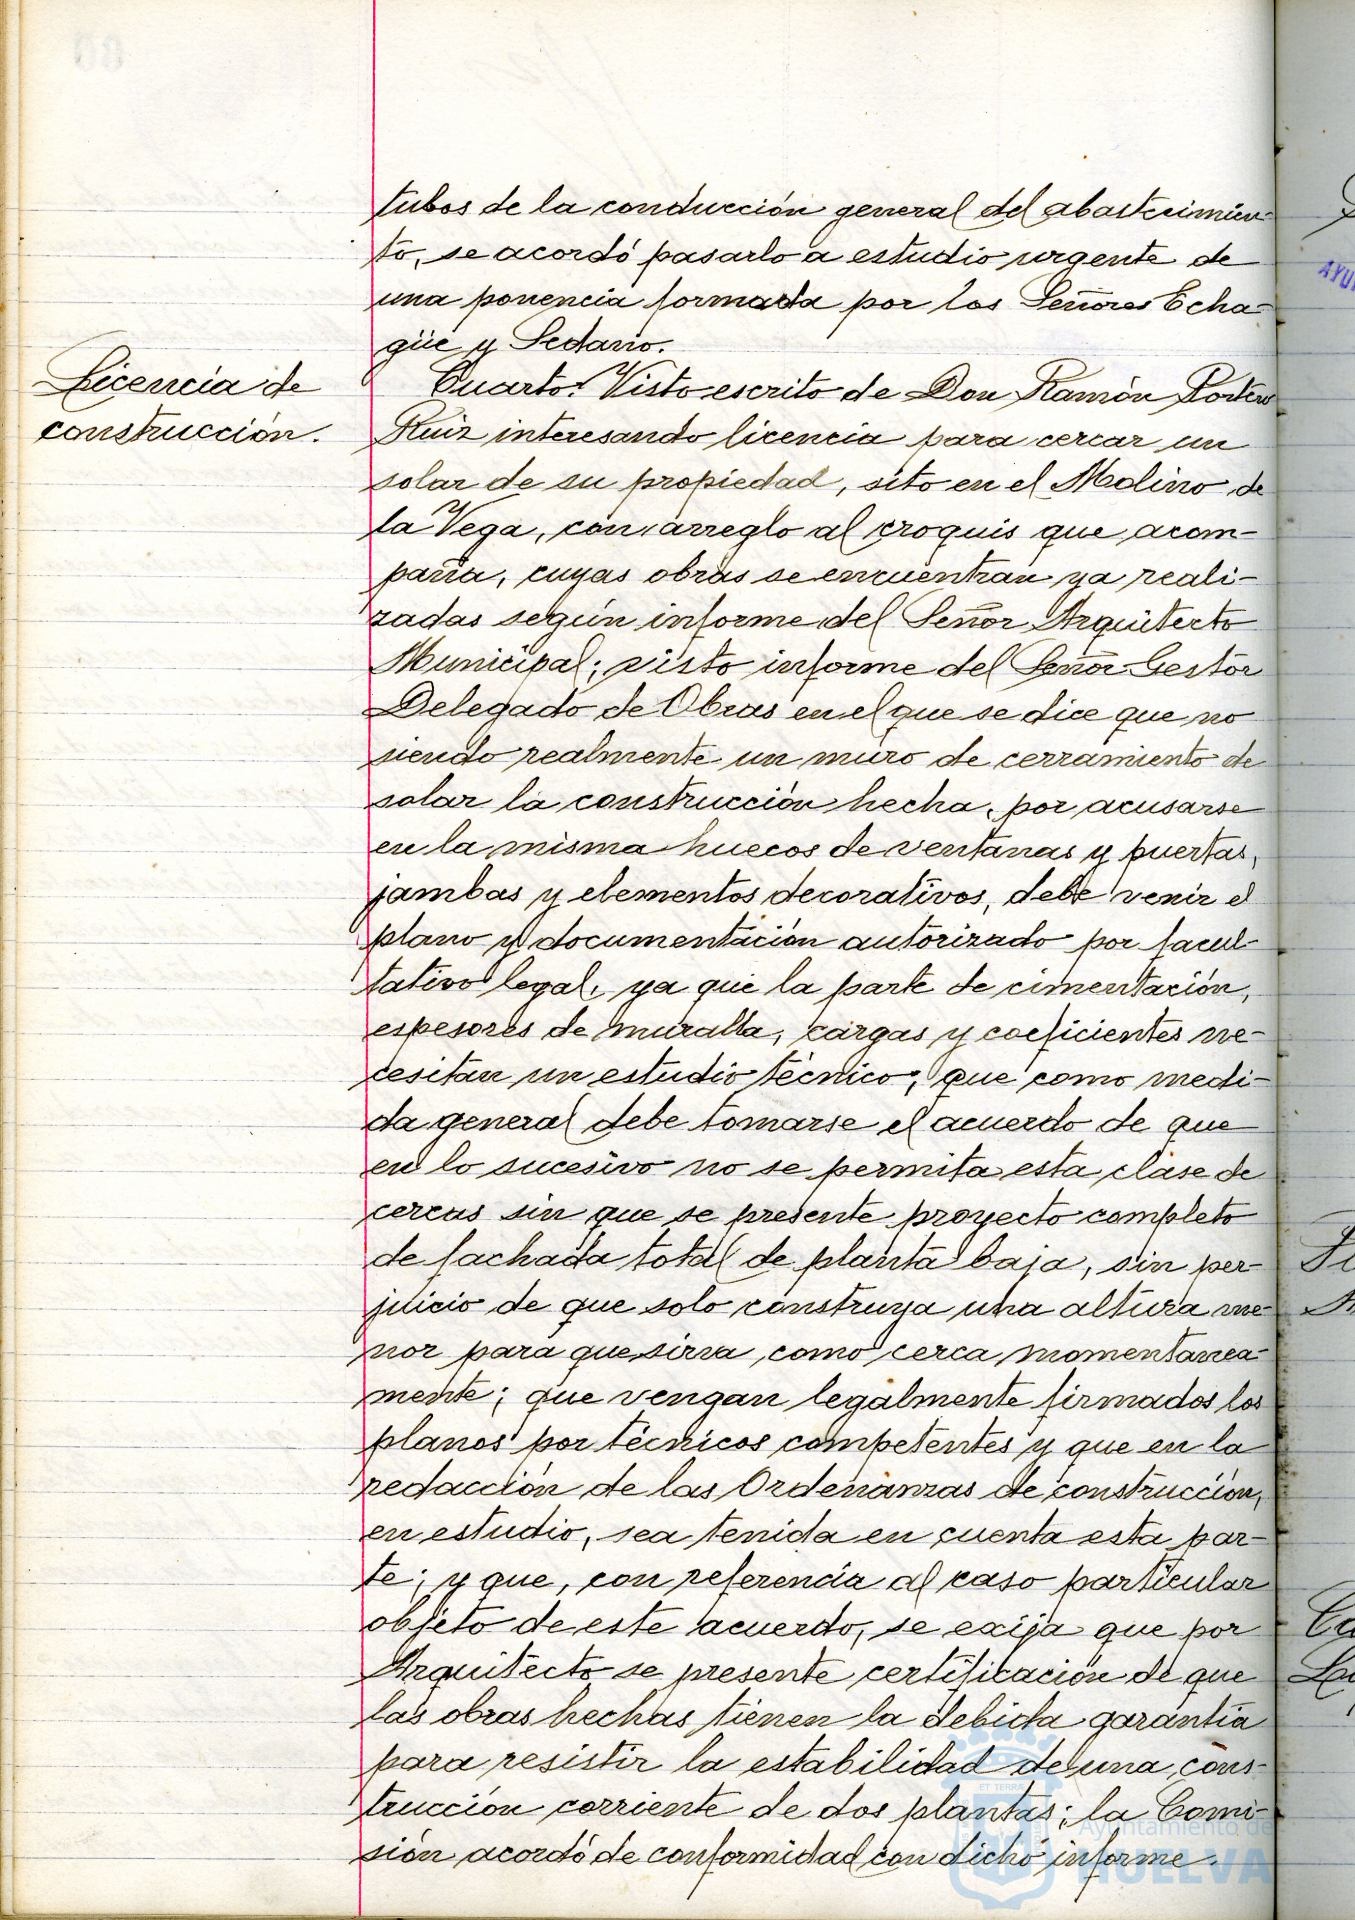 tubos de la conducción general del abastecimien-
to, se acordó pasarlo a estudio urgente de
una ponencia formada por los Señores Echa-
güe y Sedano.
Licencia de
construcción.
Cuarto: Visto escrito de Don Ramón Portero
Ruiz interesando licencia para cercar un
solar de su propiedad, sito en el Molino de
la Vega, con arreglo al croquis que acom-
paña, cuyas obras se encuentran ya reali-
zadas según informe del Señor Arquitecto
Municipal; visto informe del Señor Gestor
Delegado de Obras en el que se dice que no
siendo realmente un muro de cerramiento de
solar la construcción hecha, por acusarse
en la misma huecos de ventanas y puertas,
jambas y elementos decorativos, debe venir el
plano y documentación autorizado por facul-
tativo legal, ya que la parte de cimentación,
espesores de muralla, cargas y coeficientes ne-
cesitan un estudio técnico; que como medi-
da general debe tomarse el acuerdo de que
en lo sucesivo no se permita esta clase de
cercas sin que se presente proyecto completo
de fachada total de planta baja, sin per-
juicio de que solo construya una altura me-
nor para que sirva como cerca momentanea-
mente; que vengan legalmente firmados los
planos por técnicos competentes y que en la
redacción de las Ordenanzas de construcción,
en estudio, sea tenida en cuenta esta par-
te; y que, con referencia al caso particular
objeto de este acuerdo, se exija que por
Arquitecto se presente certificación de que
las obras hechas tienen la debida garantía
para resistir la estabilidad de una cons-
trucción corriente de dos plantas; la Comi-
sión acordó de conformidad con dicho informe.
ET TERRA
Ayuntamiento de
HUELVA